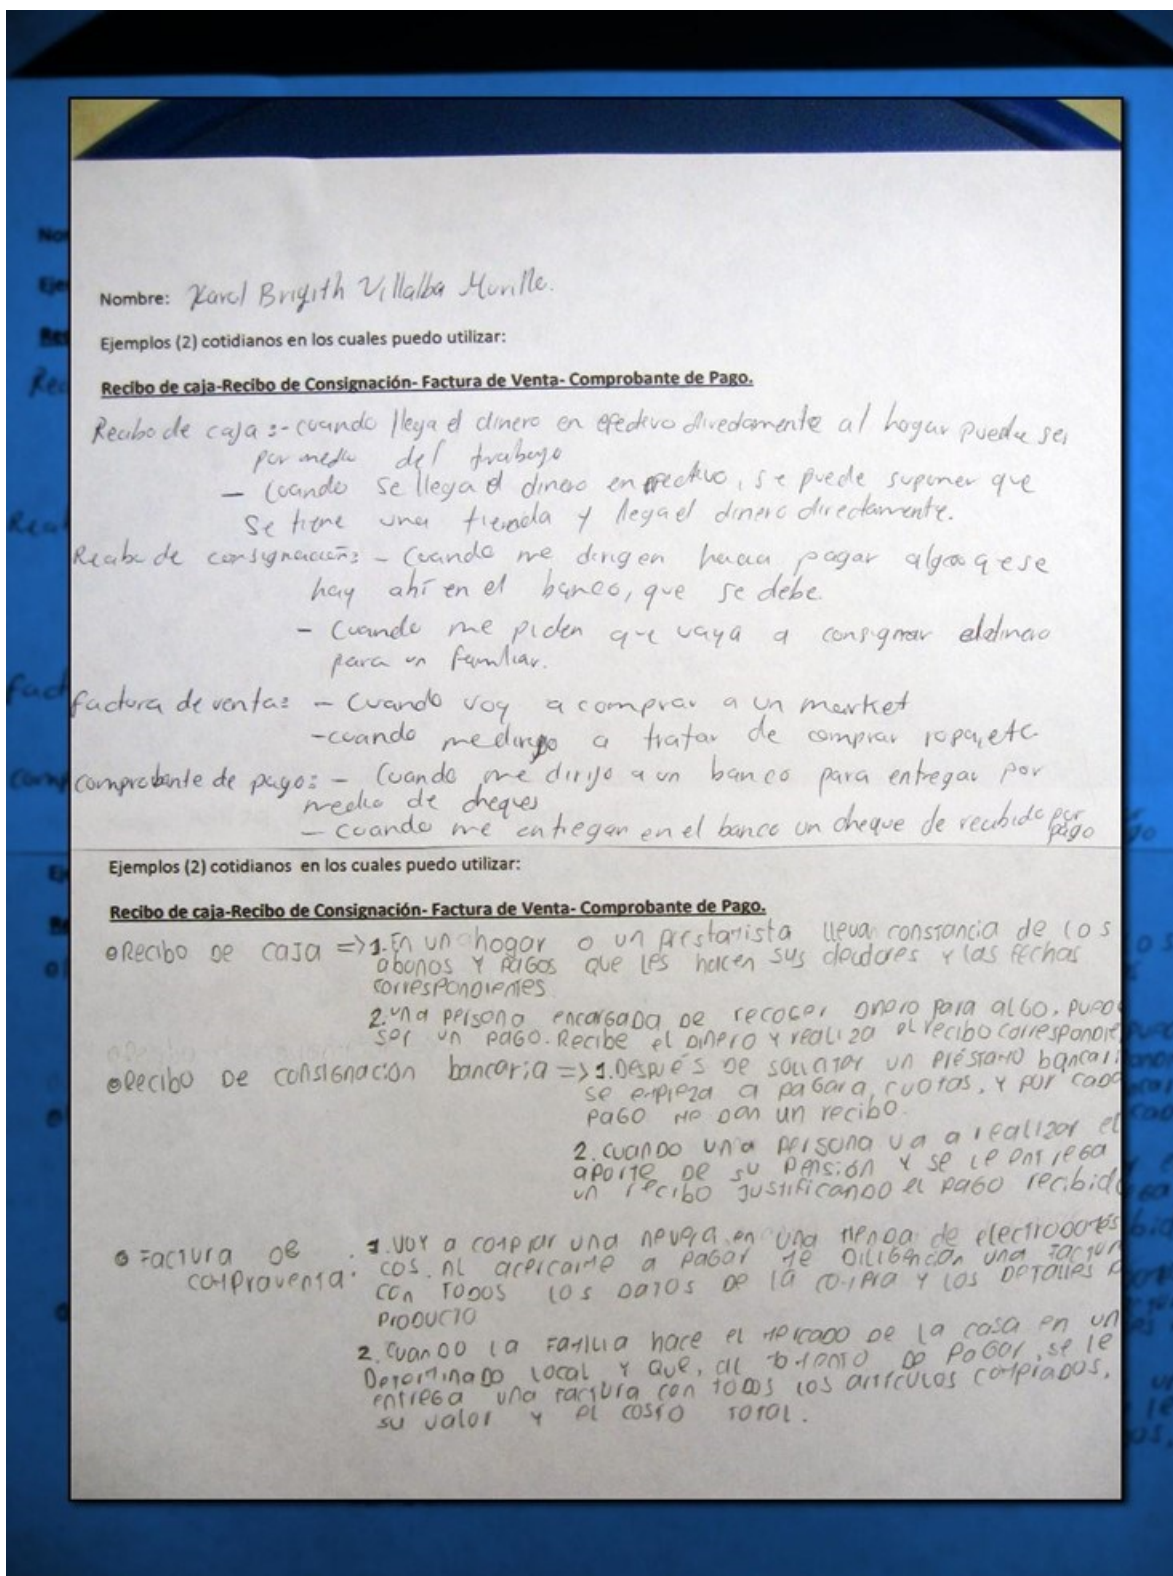 Nombre: Karol Brigith Villalba Murillo.
Ejemplos (2) cotidianos en los cuales puedo utilizar:
Recibo de caja-Recibo de Consignación- Factura de Venta- Comprobante de Pago.
Recibo de caja :- cuando llega el dinero en efectivo directamente al hogar puede ser
por medio del trabajo
- Cuando se llega el dinero en efectivo, se puede suponer que
se tiene una tienda y llega el dinero directamente.
Recibo de consignación: - Cuando me dirigen hacia pagar algo q ese
hay ahí en el banco, que se debe.
- Cuando me piden que vaya a consignar el dinero
para un familiar.
factura de venta: - Cuando voy a comprar a un market
-cuando me dirijo a tratar de comprar ropa, etc.
comprobante de pago: - Cuando me dirijo a un banco para entregar por
medio de cheques
- cuando me entregan en el banco un cheque de recibido por
pago
Ejemplos (2) cotidianos en los cuales puedo utilizar:
Recibo de caja-Recibo de Consignación- Factura de Venta- Comprobante de Pago.
Recibo de caja => 1. En un hogar o un prestamista lleva constancia de los
abonos y pagos que les hacen sus deudores y las fechas
correspondientes
2. una persona encargada de recoger dinero para algo, puede
ser un pago. Recibe el dinero y realiza el recibo
Recibo de consignación bancaria => 1. Después de solicitar un préstamo
se empieza a pagar a cuotas, y por cada
pago me dan un recibo.
2. cuando una persona va a realizar el
aporte de su pensión y se le entrega
un recibo justificando el pago recibido
Factura de 1. voy a comprar una nevera en una tienda de
compraventa. cos. al acercarme a pagar me diligencian una factura
con todos los datos de la compra y los detalles
producto
2. cuando la familia hace el mercado de la casa en un
determinado local y que, al momento de pagar, se le
entrega una factura con todos los artículos comprados,
su valor y el costo total.